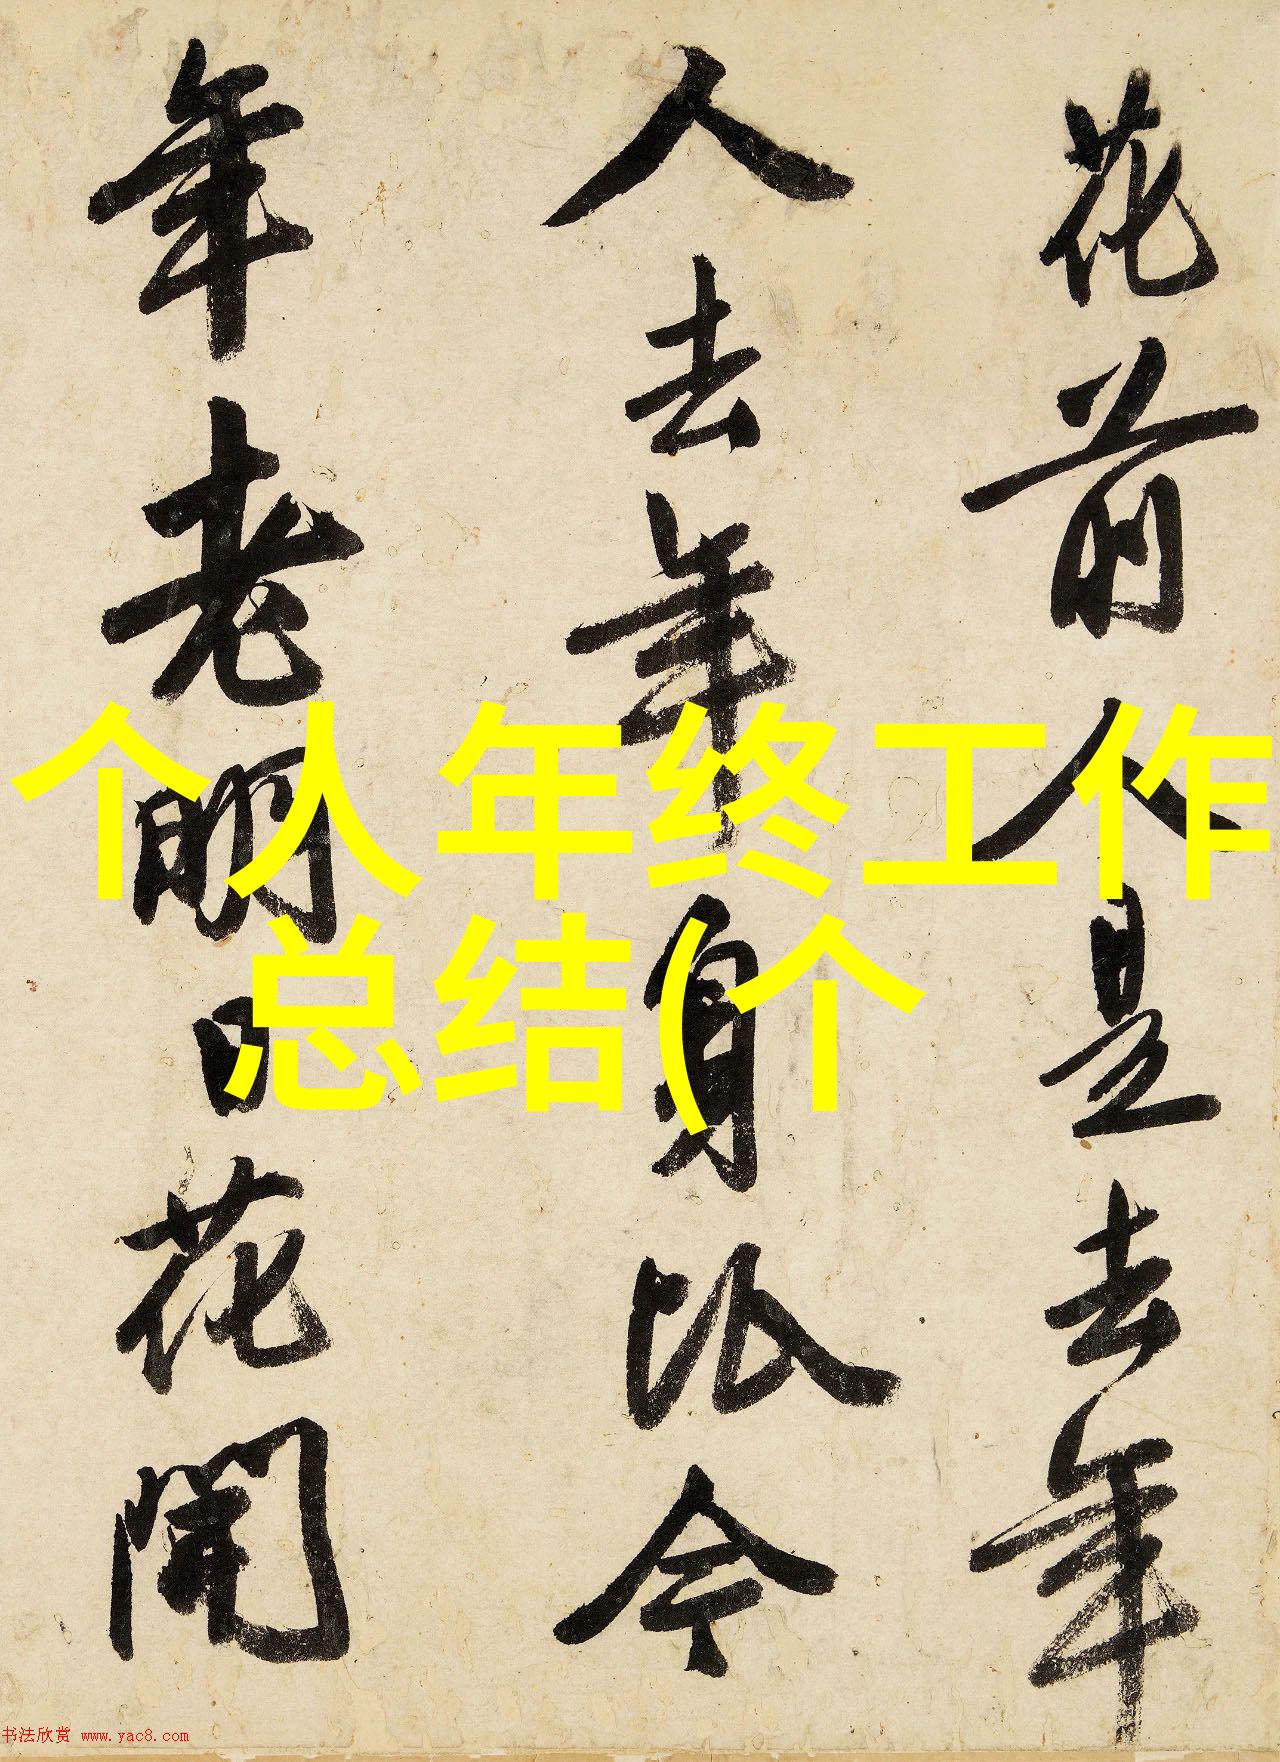 花前人是去年
人去年身比今
年老明日花開
个人年终工作
总结(个
书法欣赏 www.yac8.com